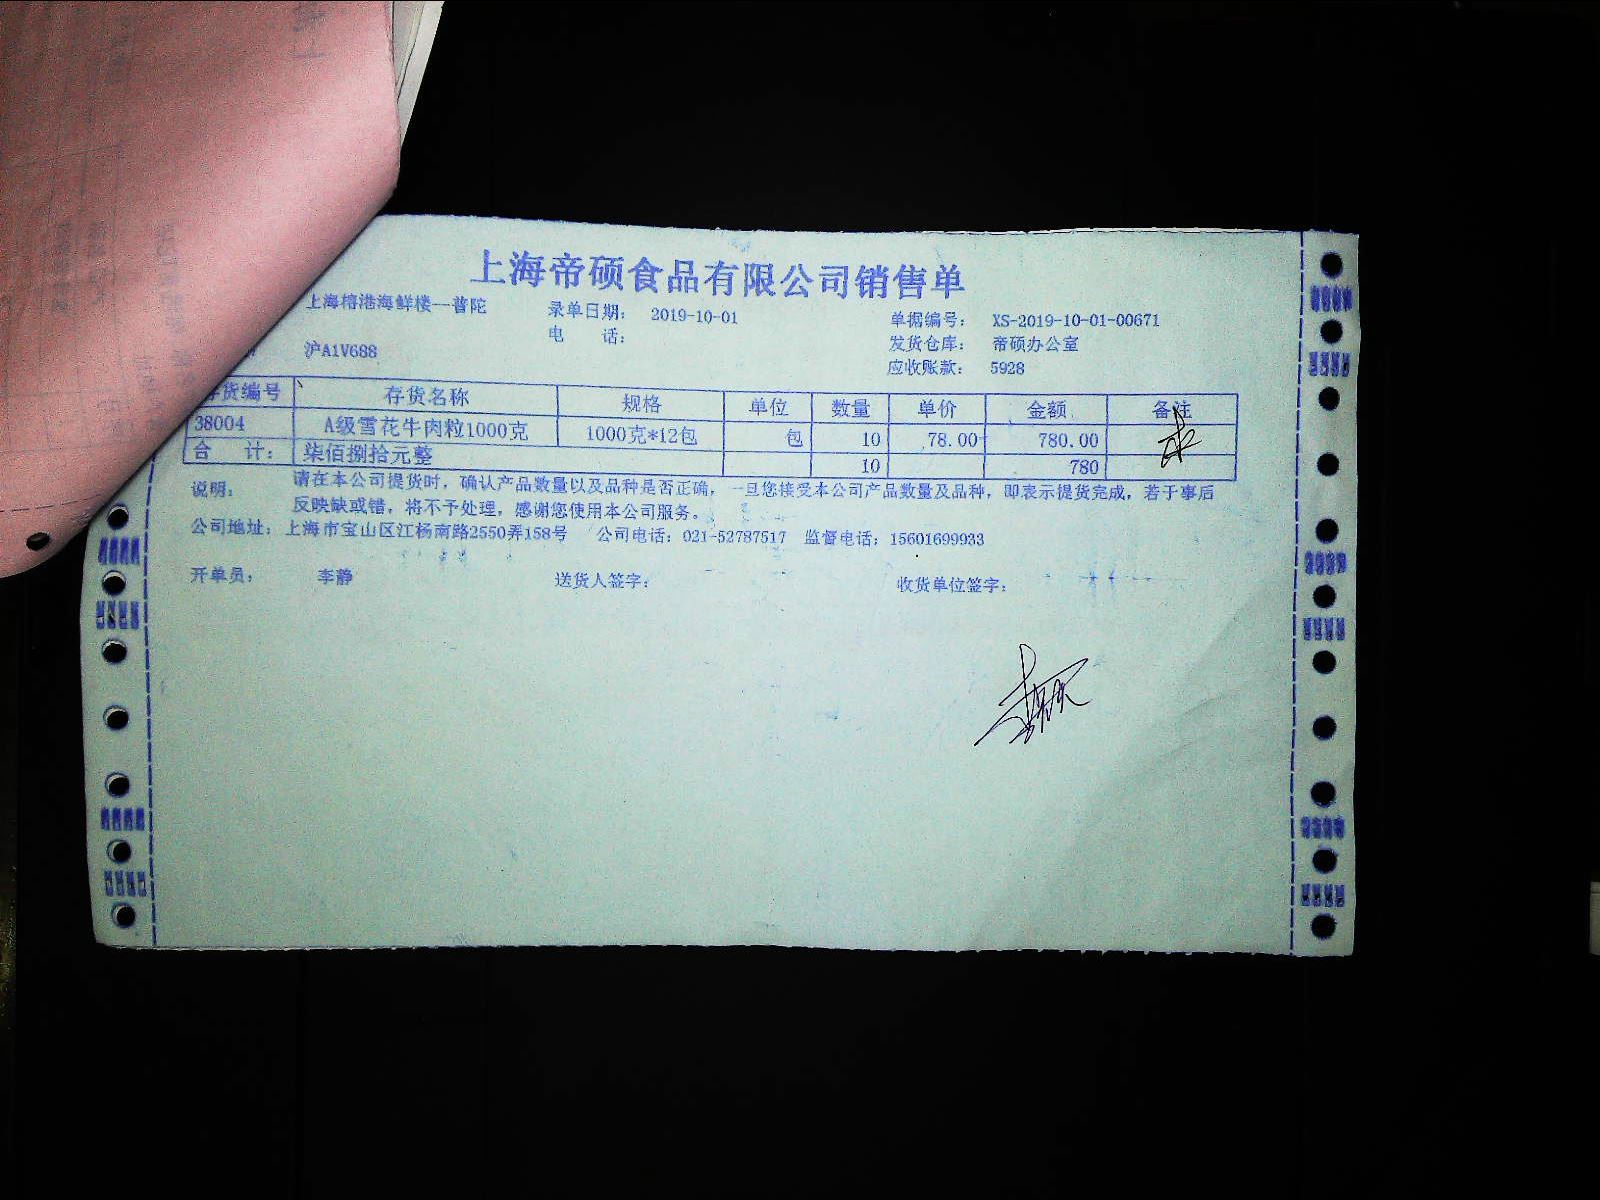 上海帝硕食品有限公司销售单
上海榕港海鲜楼—普陀 录单日期： 2019-10-01 单据编号： XS-2019-10-01-00671
电 话： 发货仓库： 帝硕办公室
沪A1V688 应收账款： 5928
存货编号 存货名称 规格 单位 数量 单价 金额 备注
38004 A级雪花牛肉粒1000克 1000克*12包 包 10 78.00 780.00
合 计： 柒佰捌拾元整 10 780
说明： 请在本公司提货时，确认产品数量以及品种是否正确，一旦您接受本公司产品数量及品种，即表示提货完成，若于事后
反映缺或错，将不予处理，感谢您使用本公司服务。
公司地址：上海市宝山区江杨南路2550弄158号 公司电话：021-52787517 监督电话：15601699933
开单员： 李静 送货人签字： 收货单位签字：